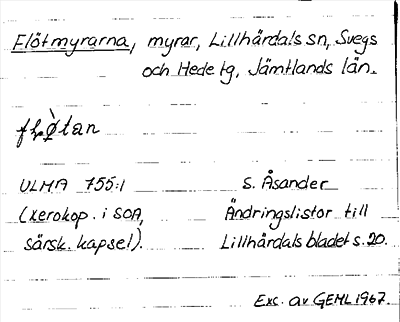 Flötmyrarna, myrar, Lillhärdals sn, Svegs
och Hede tg, Jämtlands län.
ULMA 755:1 S. Åsander
(xerokop. i SOA, Ändringslistor till
särsk. kapsel). Lillhärdals bladet s. 20.
Exc. av GEML 1967.